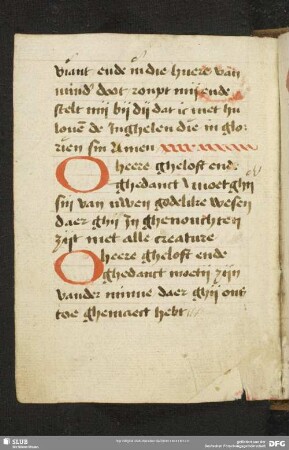 viant ende in die huere van
mind' doot roupt mij ende
stelt mij bij dij dat ic met hu
loven de Inghelen die in glo-
rien sin Amen
O heere gheloft ende
ghedanct moet ghij
sin van uwen godelike wesen
daer ghij In ghenouchten
zijt met alle creature
O heere gheloft ende
ghedanct moetij zijn
vander minne daer ghij ons
toe ghemaect hebt
SLUB
DFG